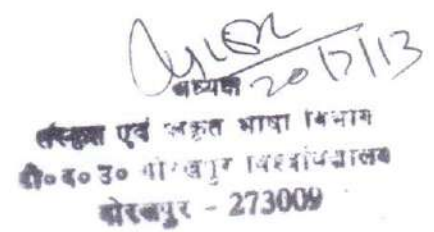 20/7/13
अध्यक्ष
संस्कृत एवं प्राकृत भाषा विभाग
दी० द० उ० गोरखपुर विश्वविद्यालय
गोरखपुर - 273009